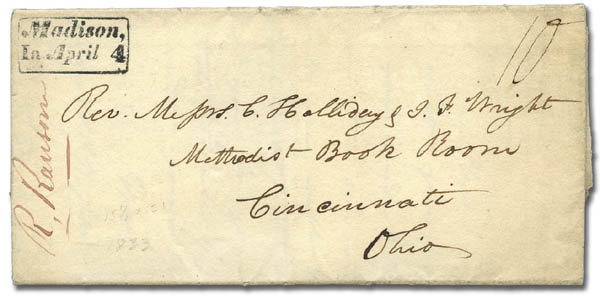 Madison,
In April 4
10
Rev. Messrs. C. Holliday & J. F. Wright
Methodist Book Room
Cincinnati
Ohio
R, Ransom
1833